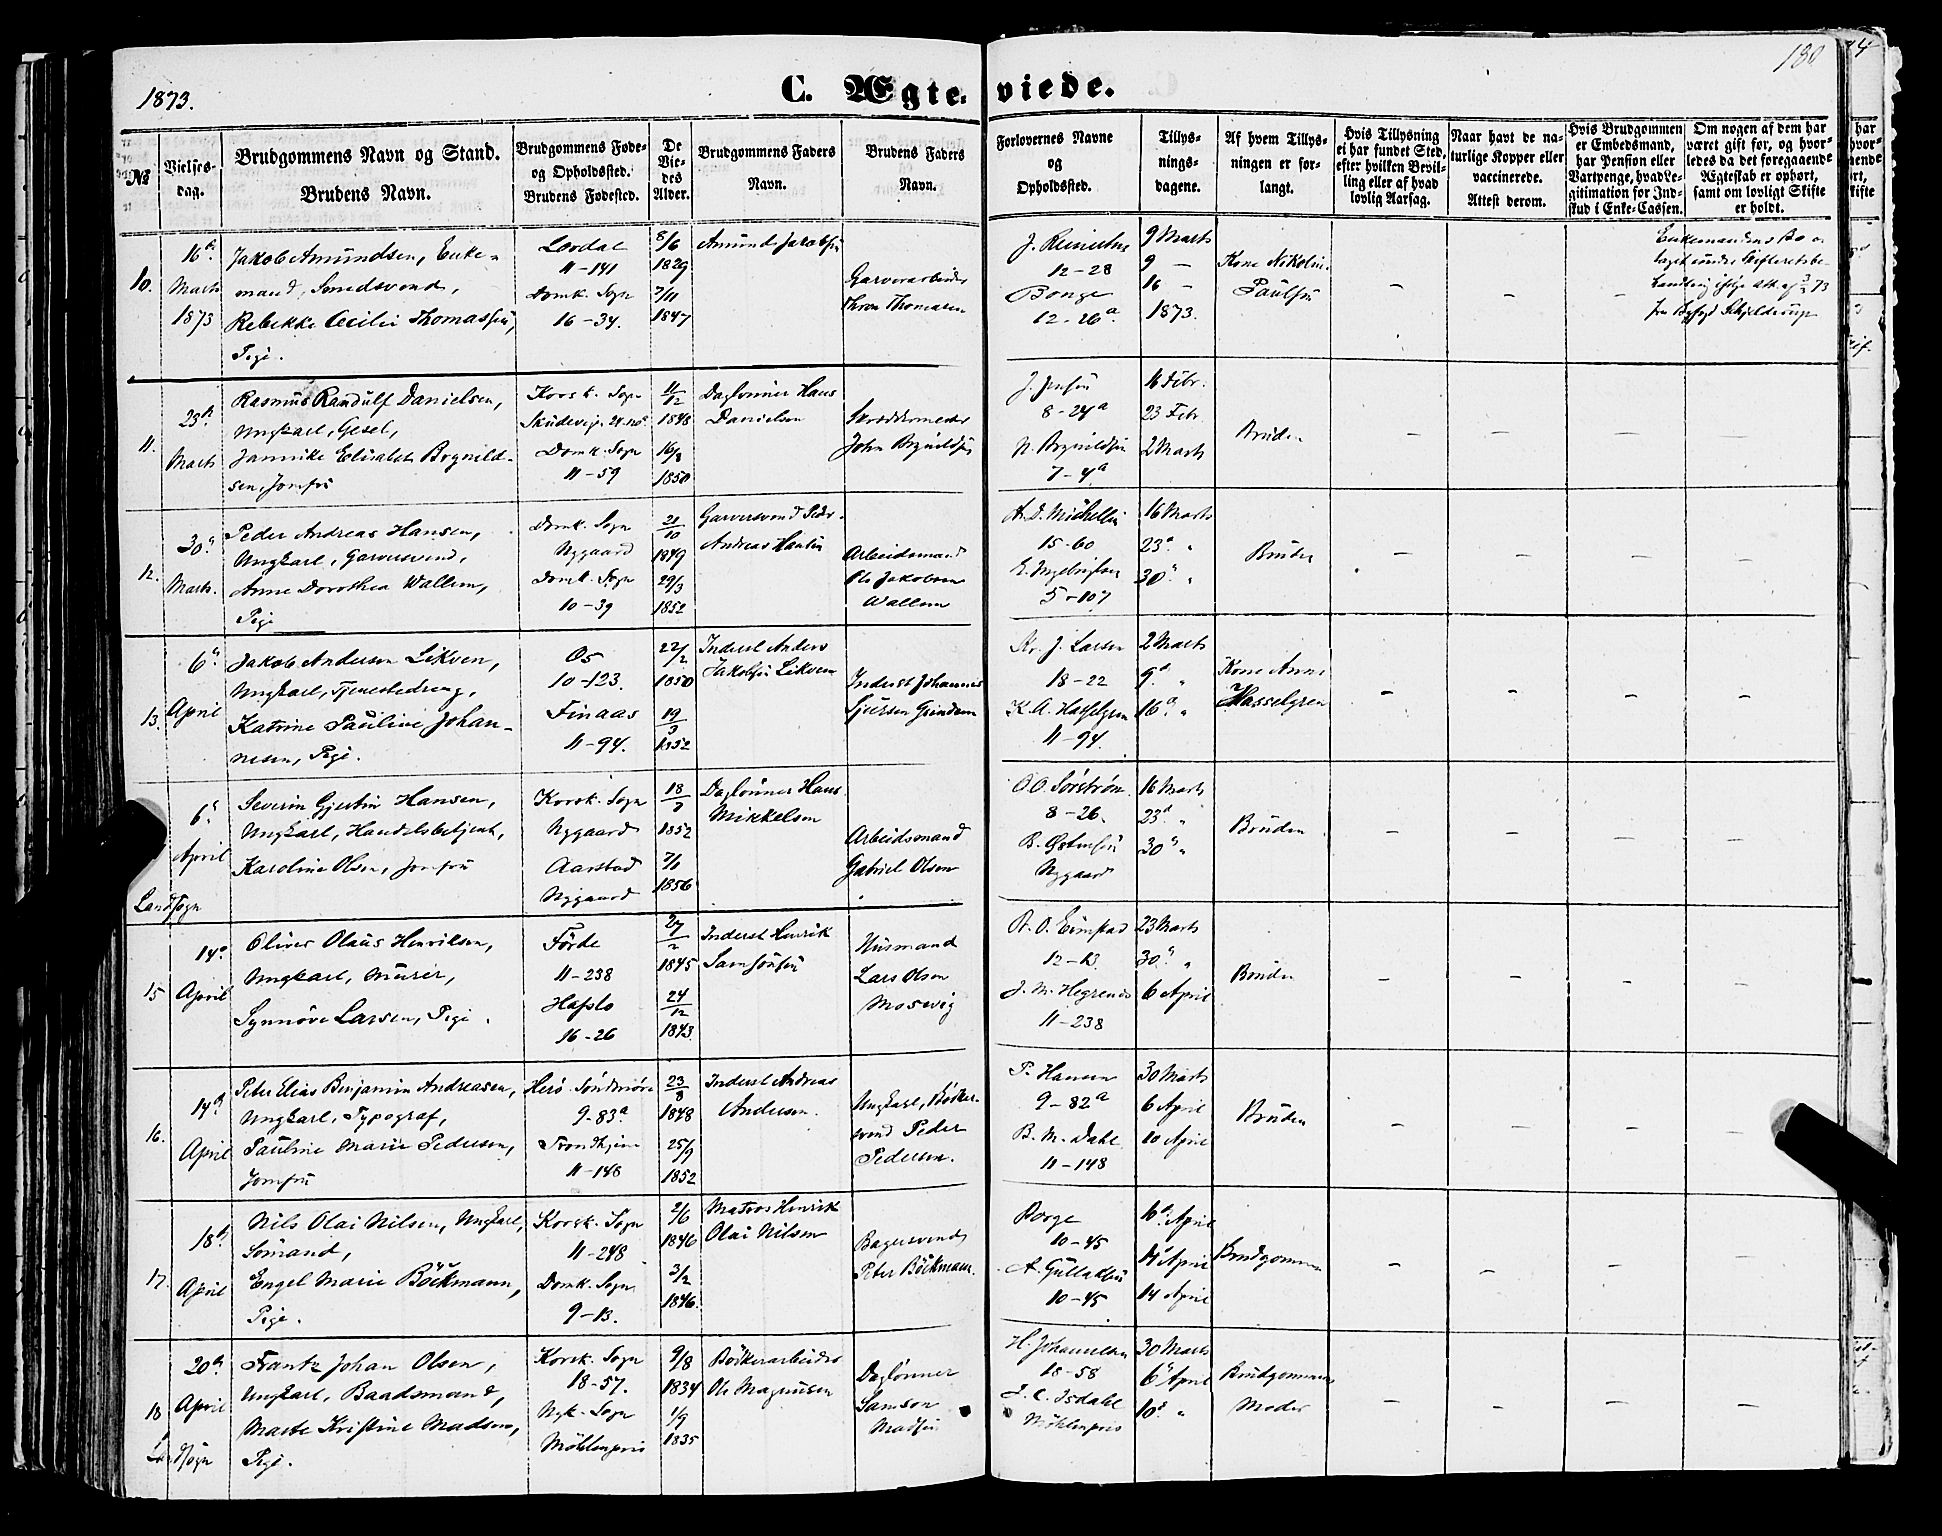 1873.
C. Ægteviede.
180
№
Vielsesdag.
Brudgommens Navn og Stand.
Brudens Navn.
Brudgommens Føde- og Opholdssted.
Brudens Fødested.
De Viedes Alder.
Brudgommens Faders Navn.
Brudens Faders Navn.
Forlovernes Navne og Opholdssted.
Tillysningsdagene.
Af hvem Tillysningen er forlangt.
Hvis Tillysning ei har fundet Sted, efter hvilken Bevilling eller af hvad lovlig Aarsag.
Naar havt de naturlige Kopper eller vaccinerede.
Attest derom.
Hvis Brudgommen er Embedsmand, har Pension eller Vartpenge, hvad Legitimation for Indskud i Enke-Cassen.
Om nogen af dem har været gift før, og hvorledes da det foregaaende Ægteskab er ophørt, samt om lovligt Skifte er holdt.
10.
16de Marts 1873
Jakob Amundsen, Enkemand, Smedsvend,
Rebekke Cecilie Thomassen, Pige.
11-141
Domk. Sogn
16-34.
8/6 1829
7/11 1847
Amund Jacobsen
Garverarbeider
Thomasen
12-28
12-26a
9 Marts
9 -
16 -
1873.
Kone Nikoline Paulsen
11.
23de Marts
Rasmus Randulf Danielsen,
Ungkarl, Gesel,
Jannike Elisabet Brynildsen, Jomfru
Korsk. Sogn
Domk. Sogn
11-59
11/12 1848
16/8 1850
Daglønner Hans Danielsen
Skræddermester
John Brynildsen
J. Jensen
8-24a
N. Brynildsen
7-4a
16 Febr.
23 Febr.
2 Marts
Bruden
12.
30te Marts.
Peder Andreas Hansen,
Ungkarl, Garversvend,
Anne Dorothea Wallem,
Pige
Domk. Sogn
Nygaard
Domk. Sogn
10-39
21/10 1849
29/3 1852
Garversvend Peder
Andreas Hansen
Arbeidsmand
Ole Jakobsen
Wallem
A. D. Michelsen
15-60
5-107
16 Marts
23de "
30te "
Bruden
13.
6te April
Jakob Andersen Likven,
Ungkarl, Tjenestedreng,
Katrine Pauline Johannesen, Pige.
Os
10-123.
Finaas
11-94.
22/2 1850
19/3 1852
Inderst Anders
Jakobsen Likven
Inderst Johannes
Kr. J. Larsen
18-22
K. A. Hasselgren
11-94.
2 Marts
9de "
16de "
Kone Anne
Hasselgren
6te April
Landsogn
Severin Gjertin Hansen,
Ungkarl, Handelsbetjent,
Karoline Olsen, Jomfru
Korsk. Sogn
Nygaard
Aarstad
Nygaard
18/7 1852
7/1 1856
Daglønner Hans
Mikkelsen
Arbeidsmand
Gabriel Olsen
O. O. Sørstrøm
8-26.
Nygaard
16 Marts
23de "
30te "
Bruden
15
14de April
Oliver Olaus Henriksen,
Ungkarl, Murer,
Synnøve Larsen, Pige.
Førde
11-238
Hafslo
16-26
27/2 1845
24/12 1843
Inderst Henrik
Samsonsen
Husmand
Lars Olsen
Mosevig
12-13
J. M. Hegrenes
11-238
23 Marts
30te "
6 April
Bruden
16.
14de April
Peter Elias Benjamin Andreasen,
Ungkarl, Typograf,
Pauline Marie Pedersen,
Jomfru
Herø Søndmøre
9-83a
Trondhjem
11-148
23/8 1848
25/9 1852
Inderst Andreas
Andersen.
Ungkarl, Bødkersvend Peder
Pedersen.
P. Hansen
9-82a
B. M. Dahl
11-148
30 Marts
6 April
10 April
Bruden
17.
18de April
Nils Olai Nilsen, Ungkarl,
Sømand,
Engel Marie Böckmann,
Pige.
Korsk. Sogn
11-248
Domk. Sogn
9-13.
2/6 1846
3/2 1846.
Matros Henrik
Olai Nilsen
Bagersvend
Peter Böckmann.
10-45
A. Gullaksen
10-45
14 April
14 April
Brudgommen
18
20de April
Landsogn
Frantz Johan Olsen,
Ungkarl, Baadsmand,
Marte Kristine Madsen,
Pige.
Korsk. Sogn
18-57.
Nyk. Sogn
Møhlenpris
9/8 1834
1/9 1835
Bødkerarbeider
Ole Magnusen
Daglønner
Samson
Madsen
H. Johannesen
18-58
J. C. Isdahl
Møhlenpris
30 Marts
6te April
10de "
Brudgommens
Moder